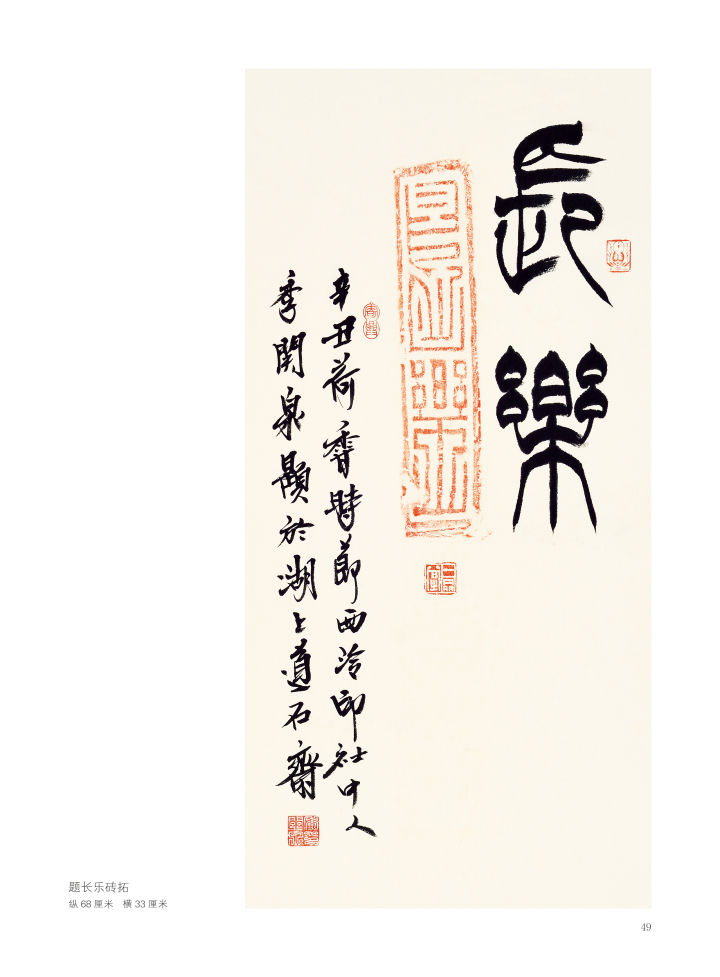 長樂
辛丑荷香時節西泠印社中人
李開泉題於湖上道石齋
题长乐砖拓
纵 68 厘米　横 33 厘米
49